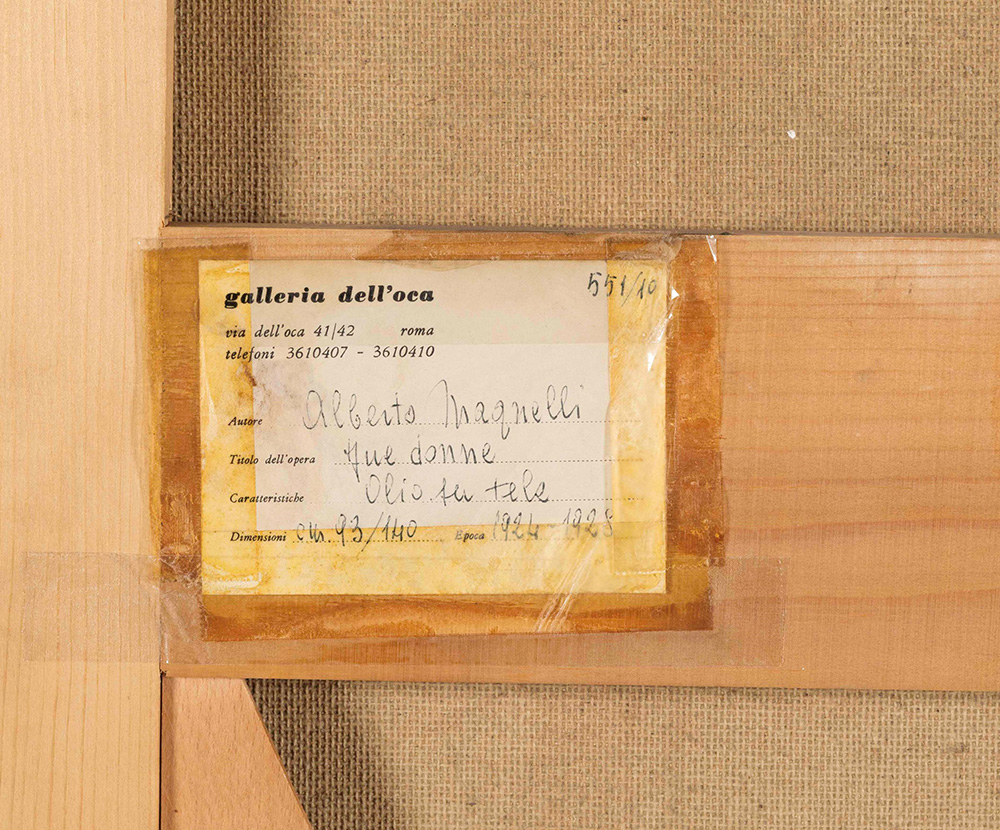 galleria dell'oca
551/10
via dell'oca 41/42 roma
telefoni 3610407 - 3610410
Autore Alberto Magnelli
Titolo dell'opera Due donne
Caratteristiche Olio su tela
Dimensioni cm. 93/140 Epoca 1924 - 1925